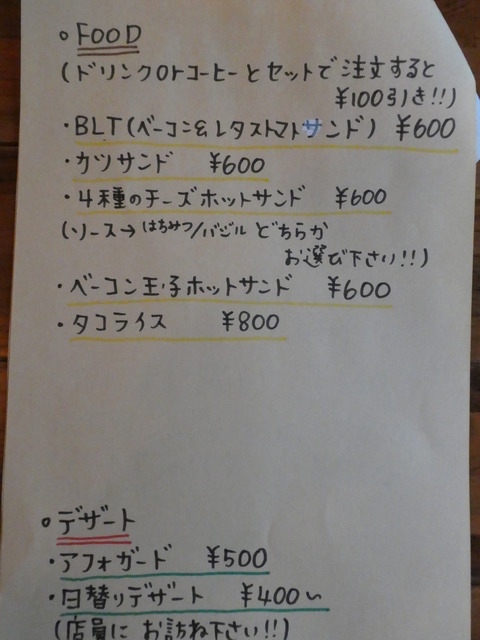 ○ FOOD
(ドリンクorコーヒーとセットで注文すると
¥100引き!!)
・BLT(ベーコン&レタストマトサンド) ¥600
・カツサンド ¥600
・4種のチーズホットサンド ¥600
(ソース→はちみつ/バジル どちらか
お選び下さい!!)
・ベーコン玉子ホットサンド ¥600
・タコライス ¥800
○ デザート
・アフォガード ¥500
・日替りデザート ¥400い
(店員に お訪ね下さい!!)